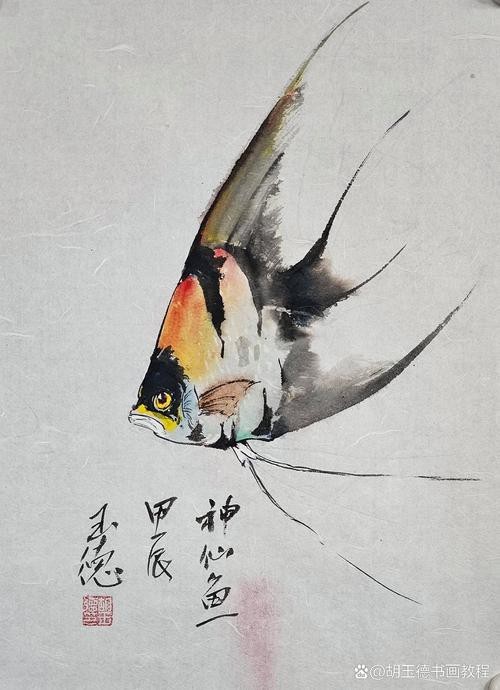 神仙鱼
甲辰
玉德
@胡玉德书画教程